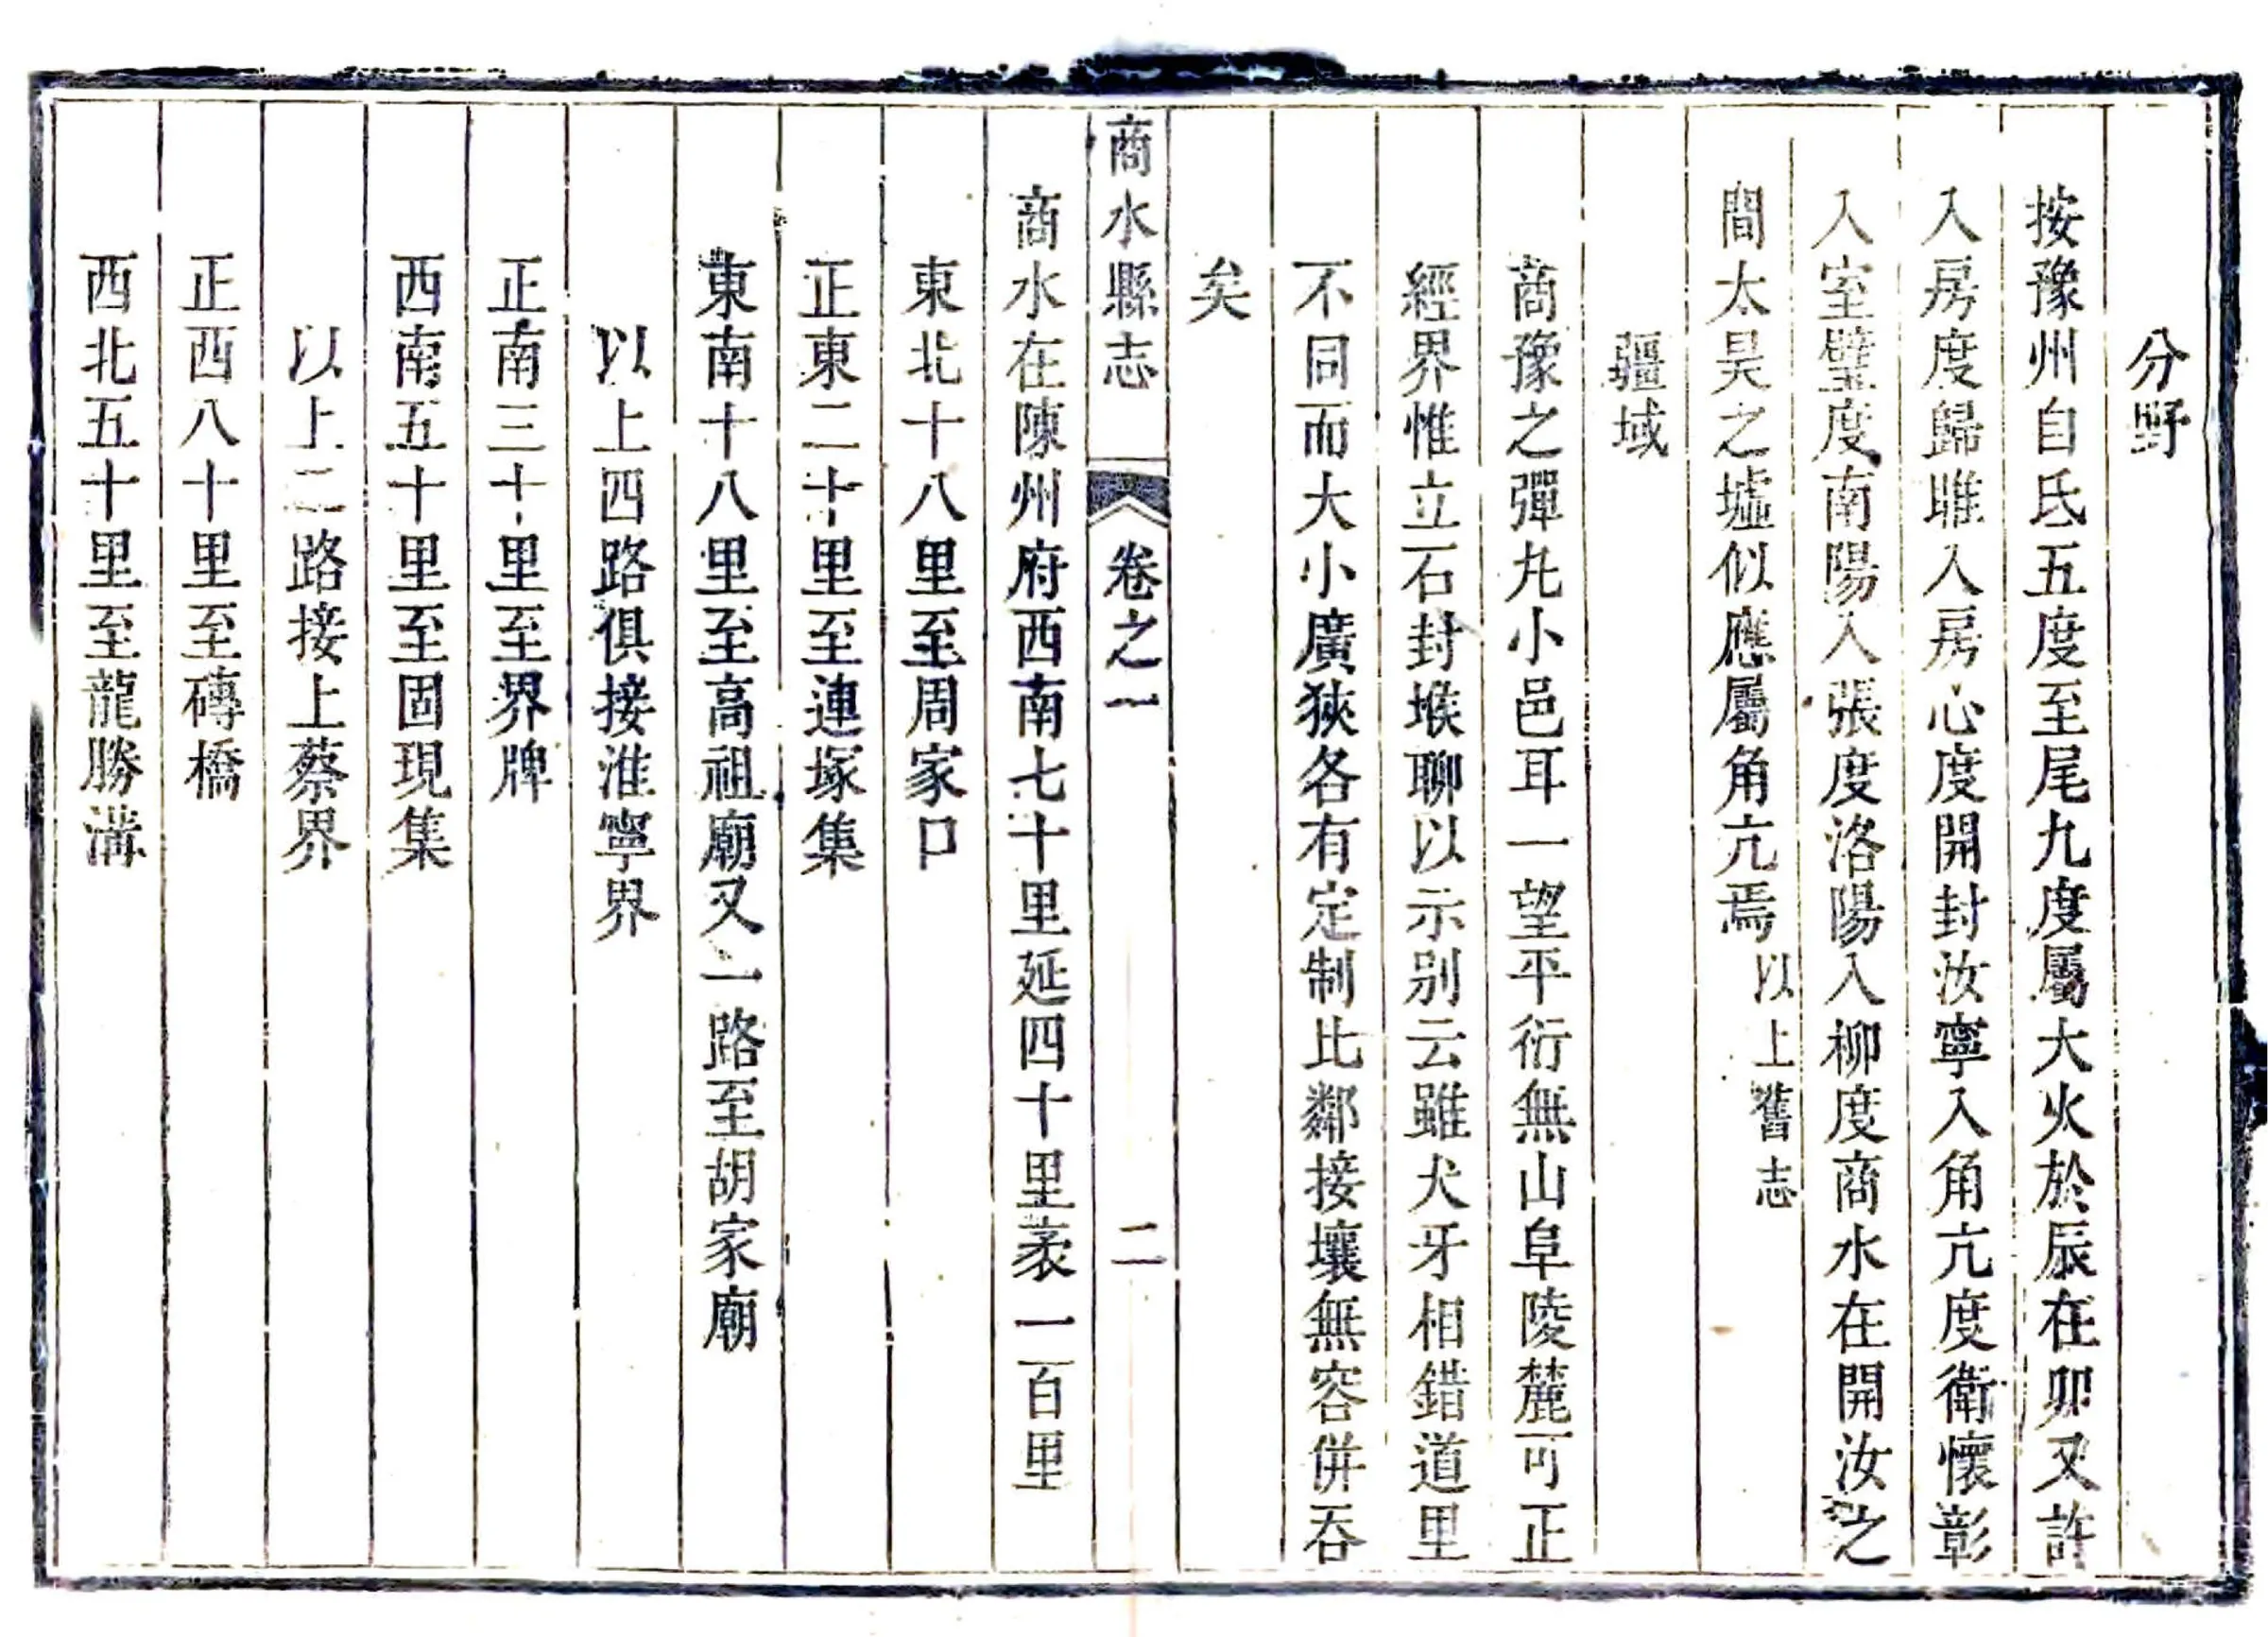 分野
按豫州自氐五度至尾九度屬大火於辰在卯又許
入房度歸睢入房心度開封汝寧入角亢度衛懷彰
入室璧度南陽入張度洛陽入柳度商水在開汝之
間太昊之墟似應屬角亢焉以上舊志
疆域
商豫之彈丸小邑耳一望平衍無山阜陵麓可正
經界惟立石封堠聊以示别云雖犬牙相錯道里
不同而大小廣狹各有定制比鄰接壤無容併吞
矣
商水縣志 卷之一 二
商水在陳州府西南七十里延四十里袤一百里
東北十八里至周家口
正東二十里至連塚集
東南十八里至高祖廟又一路至胡家廟
以上四路俱接淮寧界
正南三十里至界牌
西南五十里至固現集
以上二路接上蔡界
正西八十里至磚橋
西北五十里至龍勝溝